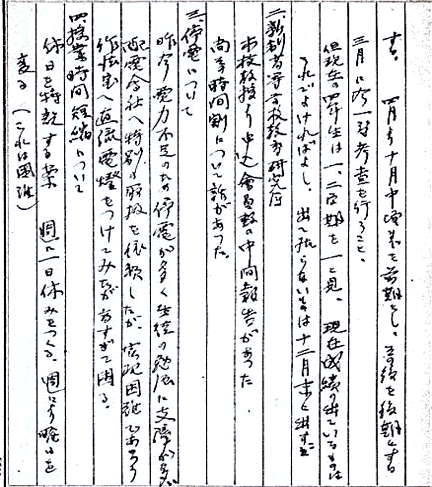 する。四月より十月中頃までを前期とし、その後を後期とする
三月に次一次考査を行うこと。
但現在の四年生は一、二学期を一と見、現在成績の出ているものは
それでよければよし。出て居らないものは十二月末に出す
二、新制高等学校教育研究会
本校教授より申込會員数の中間報告があった。
尚早時間割について話があった。
三、停電について
昨今電力不足のため停電が多く生徒の勉学に支障が多い
配電会社へ特別の取扱を依頼したが、実現困難であろう
作法室へ直流電燈をつけてみたが高すぎて困る。
四、授業時間短縮について
休日を特設する案 週に一日休みをつくる、週により曜日を
変る (これは困難)